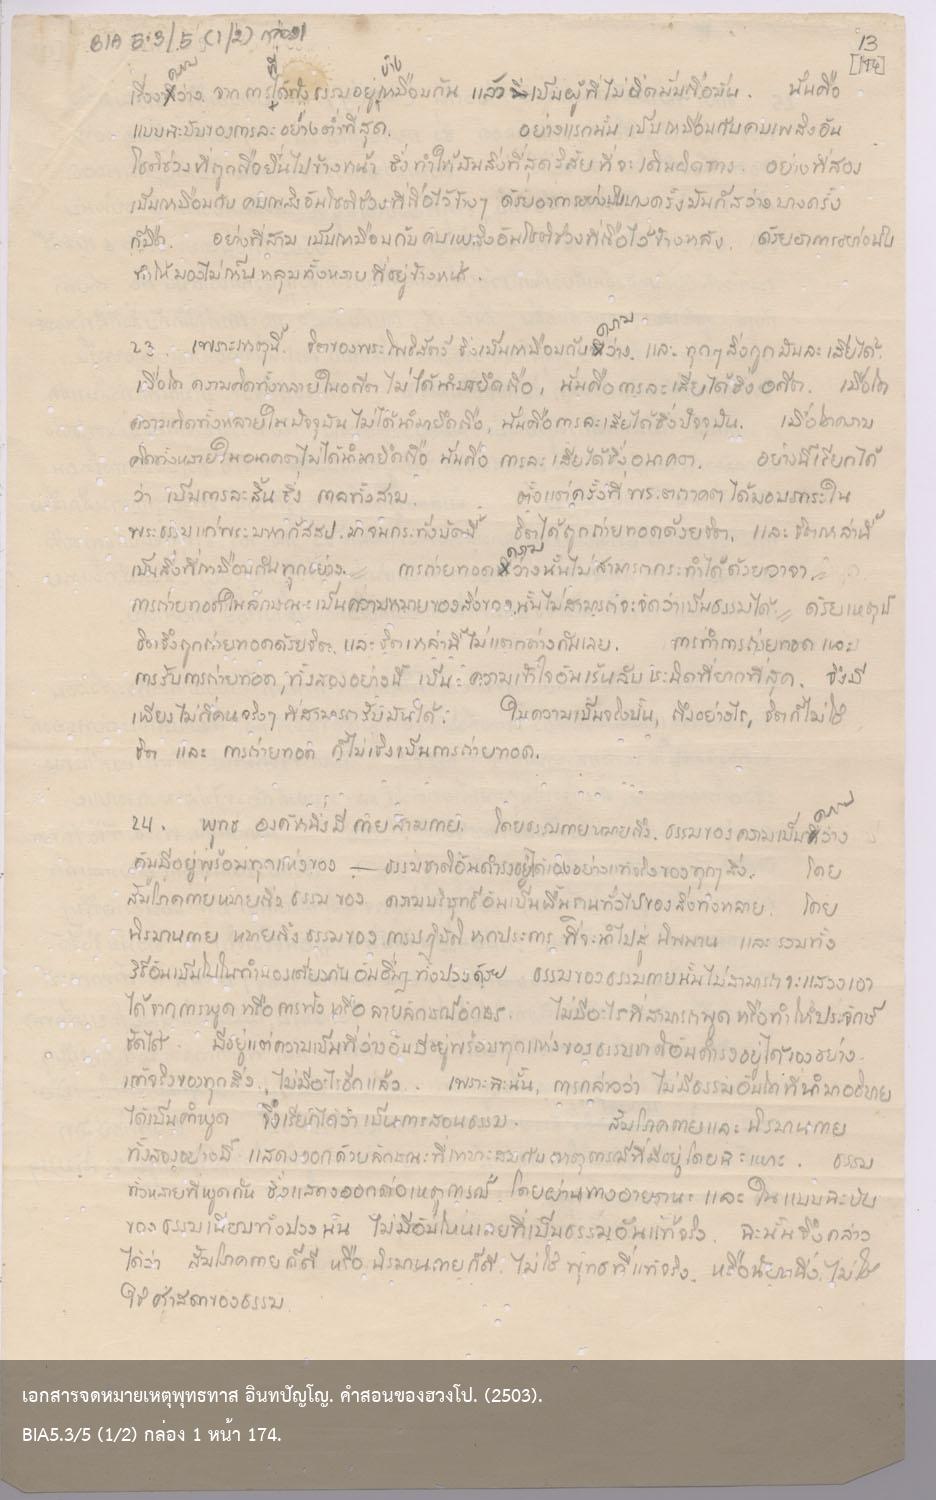 BIA 5.3/5 (1/2) กล่อง1
13
[174]
ความ ที่ บ้าง
เรื่องว่าง จากการได้ฟังธรรมอยู่เหมือนกัน แล้วเป็นผู้ที่ไม่ยึดมั่นถือมั่น. นั่นคือ
แบบฉะบับของการละอย่างต่ำที่สุด. อย่างแรกนั้น เป็นเหมือนกับคบเพลิงอัน
โชติช่วงที่ถูกถือยื่นไปข้างหน้า ซึ่งทำให้มันสิ่งที่สุดวิสัยที่จะเดินผิดทาง อย่างที่สอง
เป็นเหมือนกับ คบเพลิงอันโชติช่วงที่ถือไว้ข้างๆ ด้วยอาการอย่างนี้บางครั้งมันก็สว่าง บางครั้ง
ก็มืด. อย่างที่สาม เป็นเหมือนกับ คบเพลิงอันโชติช่วงที่ถือไว้ข้างหลัง. ด้วยอาการอย่างนี้
ทำให้มองไม่เห็น หลุมทั้งหลาย ที่อยู่ข้างหน้า.
ความ
23. เพราะเหตุนี้ จิตของพระโพธิสัตว์ จึงเป็นเหมือนกับว่าง และ ทุกๆสิ่งถูกมันละ เสียได้.
เมื่อใด ความคิดทั้งหลายในอดีต ไม่ได้นำมายึดถือ, นั่นคือการละเสียได้ซึ่ง อดีต. เมื่อใด
ความคิดทั้งหลายในปัจจุบัน ไม่ได้นำมายึดถือ, นั่นคือการละเสียได้ซึ่งปัจจุบัน. เมื่อใดความ
คิดทั้งหลายในอนาคตไม่ได้นำมายึดถือ นั่นคือ การละเสียได้ซึ่งอนาคต. อย่างนี้เรียกได้
ว่า เป็นการละสิ้น ซึ่ง กาลทั้งสาม. ตั้งแต่ครั้งที่ พระตถาคต ได้มอบภาระใน
พระธรรมแก่พระมหากัสสป. มาจนกระทั่งบัดนี้ จิตได้ถูกถ่ายทอดด้วยจิต, และ จิตเหล่านี้
เป็นสิ่งที่เหมือนกันทุกอย่าง. การถ่ายทอดความว่างนั้นไม่สามารถกระทำได้ด้วยวาจา.
การถ่ายทอดในลักษณะเป็นความหมายของสิ่งของ, นั้นไม่สามารถจะจัดว่าเป็นธรรมได้ ด้วยเหตุนี้
จิตจึงถูกถ่ายทอดด้วยจิต, และ จิตเหล่านี้ไม่แตกต่างกันเลย. การทำการถ่ายทอด และ
การรับการถ่ายทอด, ทั้งสองอย่างนี้ เป็นความเข้าใจอันเร้นลับชะนิดที่ยากที่สุด. ซึ่งมี
เพียงไม่กี่คนจริงๆ ที่สามารถรับมันได้. ในความเป็นจริงนั้น, ถึงอย่างไร, จิตก็ไม่ใช่
จิต และ การถ่ายทอด ก็ไม่เชิงเป็นการถ่ายทอด.
ความ
24. พุทธ องค์หนึ่งมี กายสามกาย. โดยธรรมกายหมายถึง ธรรมของความเป็นว่าง
อันมีอยู่พร้อมทุกแห่งของ — ธรรมชาติอันดำรงอยู่ได้เองอย่างแท้จริงของทุกๆสิ่ง. โดย
สัมโภคกายหมายถึง ธรรมของ ความบริสุทธิ์อันเป็นพื้นฐานทั่วไปของสิ่งทั้งหลาย. โดย
นิรมานกาย หมายถึง ธรรมของ การปฏิบัติ หกประการ ที่จะนำไปสู่ นิพพาน และ รวมทั้ง
วิธีอันเป็นไปในทำนองเดียวกันอันอื่นๆ ทั้งปวงด้วย ธรรมของธรรมกายนั้นไม่สามารถจะแสวงเอา
ได้จากการพูด หรือการฟัง หรือ ลายลักษณ์อักษร. ไม่มีอะไรที่สามารถพูด หรือทำให้ประจักษ์
ชัดได้. มีอยู่แต่ความเป็นที่ว่างอันมีอยู่พร้อมทุกแห่งของธรรมชาติอันดำรงอยู่ได้เองอย่าง
แท้จริงของทุกสิ่ง, ไม่มีอะไรอีกแล้ว. เพราะฉะนั้น, การกล่าวว่า ไม่มีธรรมอันใดที่นำมาอธิบาย
ได้เป็นคำพูด จึงเรียกได้ว่าเป็นการสอนธรรม. สัมโภคกายและ นิรมานกาย
ทั้งสองอย่างนี้ แสดงออกด้วยลักษณะที่เหมาะสมกับเหตุการณ์ที่มีอยู่โดยฉะเพาะ. ธรรม
ทั้งหลายที่พูดกัน ซึ่งแสดงออกต่อเหตุการณ์ โดยผ่านทางอายตนะ และ ในแบบฉะบับ
ของธรรมเนียมทั้งปวง นั้น ไม่มีอันไหนเลยที่เป็นธรรมอันแท้จริง. ฉะนั้นจึงกล่าว
ได้ว่า สัมโภคกายก็ดี หรือ นิรมานกายก็ดี ไม่ใช่ พุทธที่แท้จริง. หรือนัยหนึ่ง, ไม่ใช่
ผู้สอนของธรรม.
เอกสารจดหมายเหตุพุทธทาส อินทปัญโญ. คำสอนของฮวงโป. (2503).
BIA5.3/5 (1/2) กล่อง 1 หน้า 174.